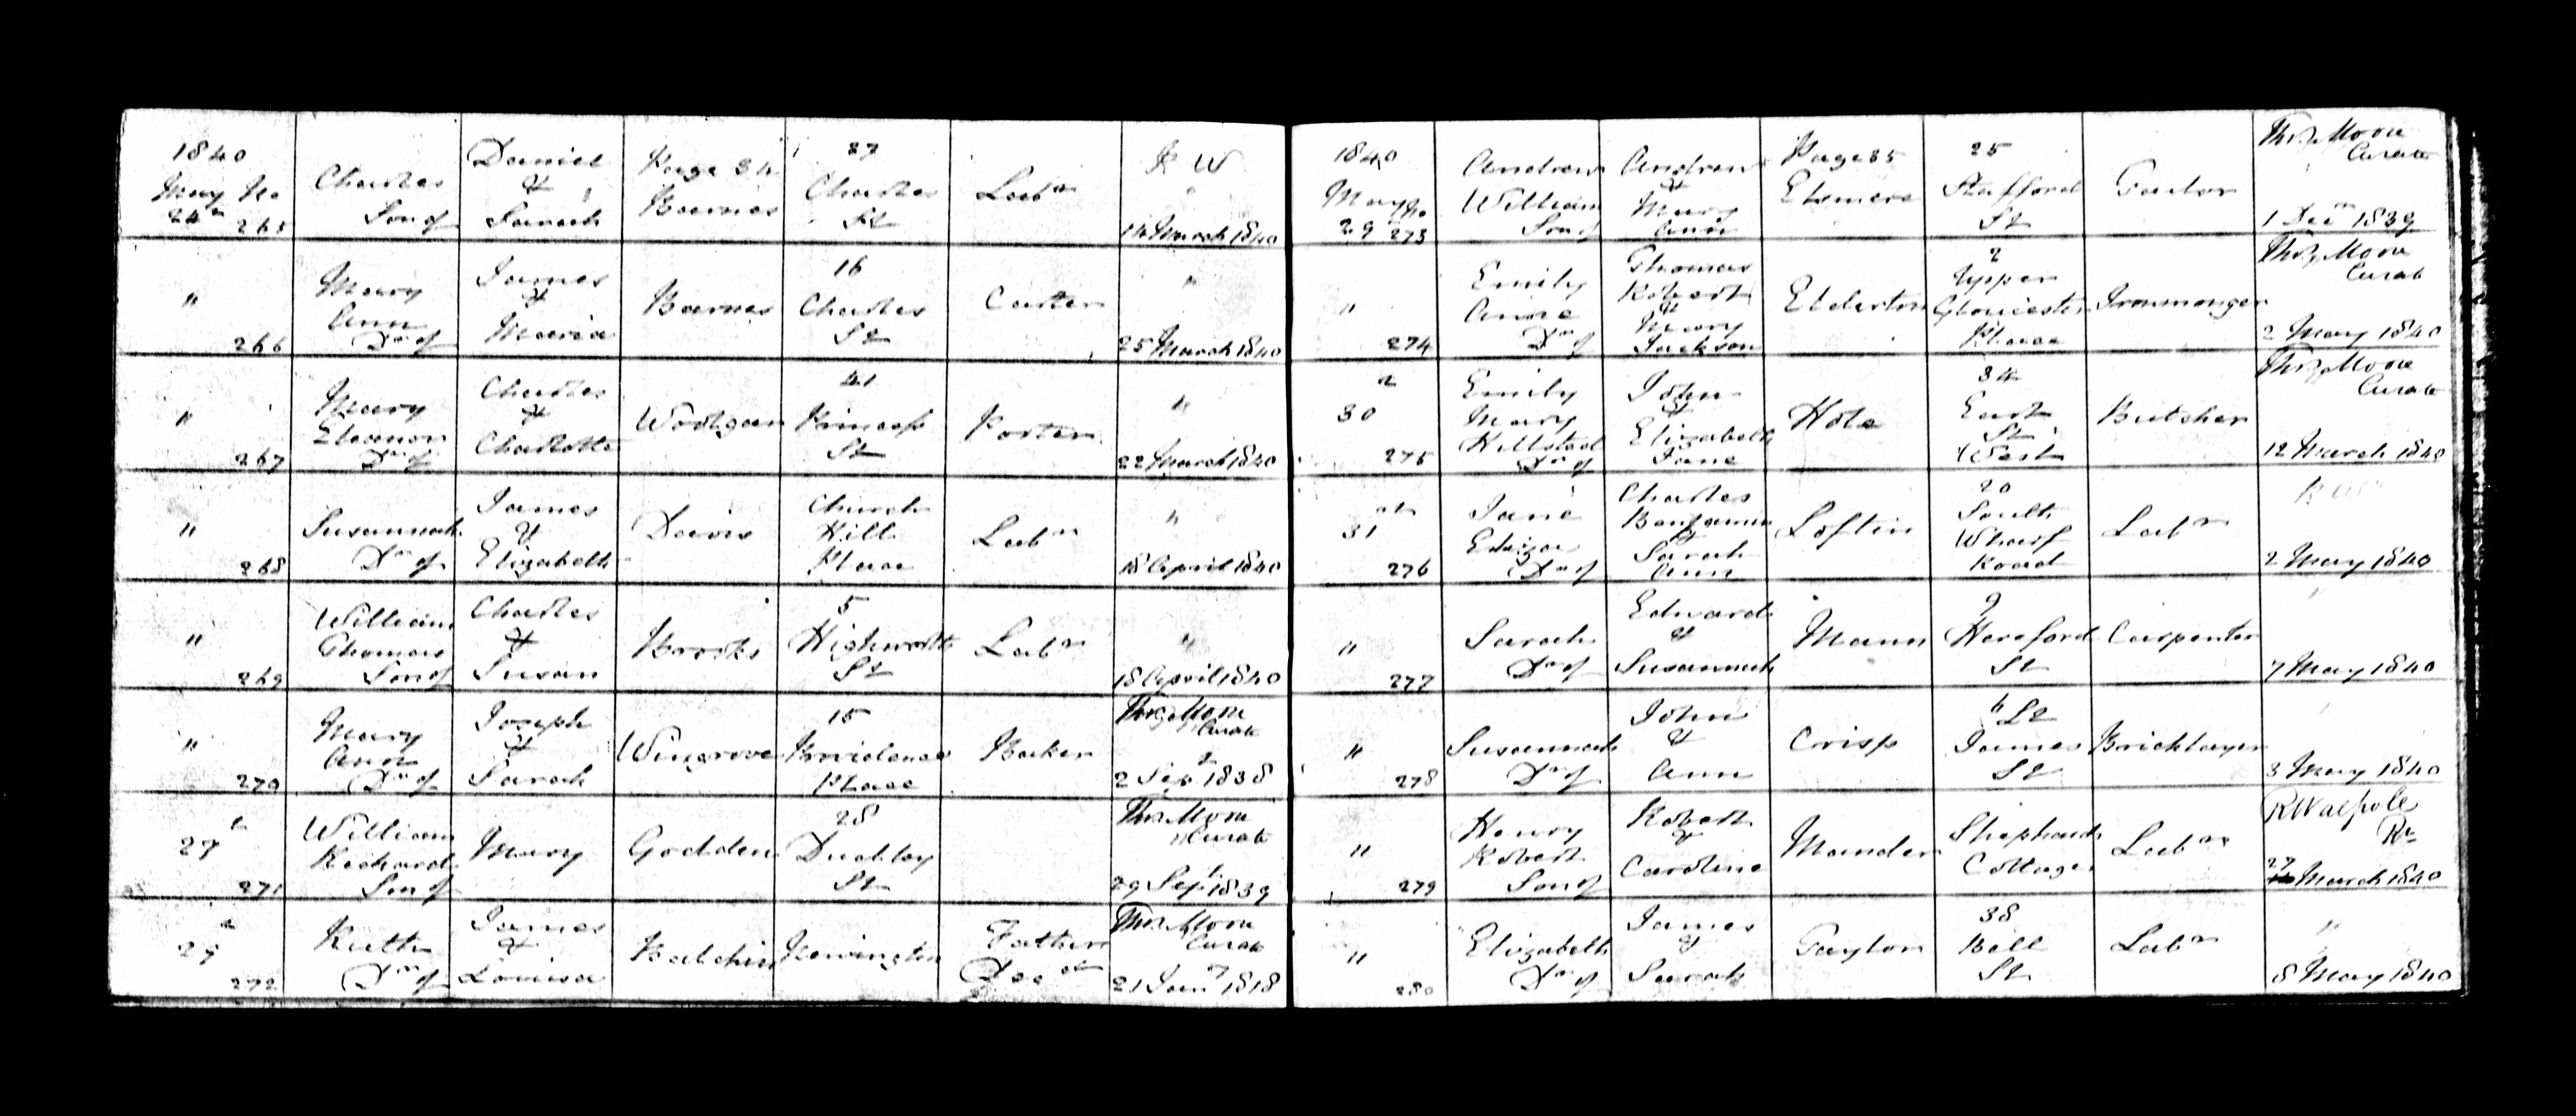 1840
May No
24th 265
Charles
Son of
Daniel
&
Sarah
Page 34
Barnes
27
Charles
St
Labr
R W
14 March 1840
"
266
Mary
Ann
Dr of
James
&
Maria
Barnes
16
Charles
St
Carter
"
25 March 1840
"
267
Mary
Eleanor
Dr of
Charles
&
Charlotte
Woolgar
41
Princess
St
Porter
"
22 March 1840
"
268
Susannah
Dr of
James
&
Elizabeth
Davis
Church
Hill
Place
Labr
"
18 April 1840
"
269
William
Thomas
Son of
Charles
&
Susan
Brooks
5
Highworth
St
Labr
"
18 April 1840
"
270
Mary
Ann
Dr of
Joseph
&
Sarah
Wingrove
15
Providence
Place
Baker
Thos Moore
Curate
2 Sepr 1838
27th
271
William
Richard
Son of
Mary
Godden
28
Dudley
St
Thos Moore
Curate
29 Sepr 1839
29th
272
Ruth
Dr of
James
&
Louisa
Balchin
Kensington
Father
Decd
Thos Moore
Curate
21 Jany 1818
1840
May No
29 273
Andrew
William
Son of
Andrew
&
Mary
Ann
Page 35
Elsmere
25
Stafford
St
Tailor
Thos Moore
Curate
1 Decr 1839
"
274
Emily
Annie
Dr of
Thomas
Robert
&
Mary
Jackson
Elderton
2
Upper
Gloucester
Place
Ironmonger
Thos Moore
Curate
2 May 1840
30
275
Emily
Mary
Dr of
John
&
Elizabeth
Jane
Hole
34
East
St
West
Butcher
Thos Moore
Curate
12 March 1840
31st
276
Jane
Eliza
Dr of
Charles
Benjamin
&
Sarah
Ann
Loftin
20
South
Wharf
Road
Labr
R W
2 May 1840
"
277
Sarah
Dr of
Edward
&
Susannah
Mann
9
Hereford
St
Carpenter
"
7 May 1840
"
278
Susannah
Dr of
John
&
Ann
Crisp
6 St
James
St
Bricklayer
"
3 May 1840
"
279
Henry
Robert
Son of
Robert
&
Caroline
Mander
Shepherds
Cottages
Labr
R Walpole
Rr
27 March 1840
"
280
Elizabeth
Dr of
James
&
Sarah
Taylor
38
Bell
St
Labr
"
8 May 1840